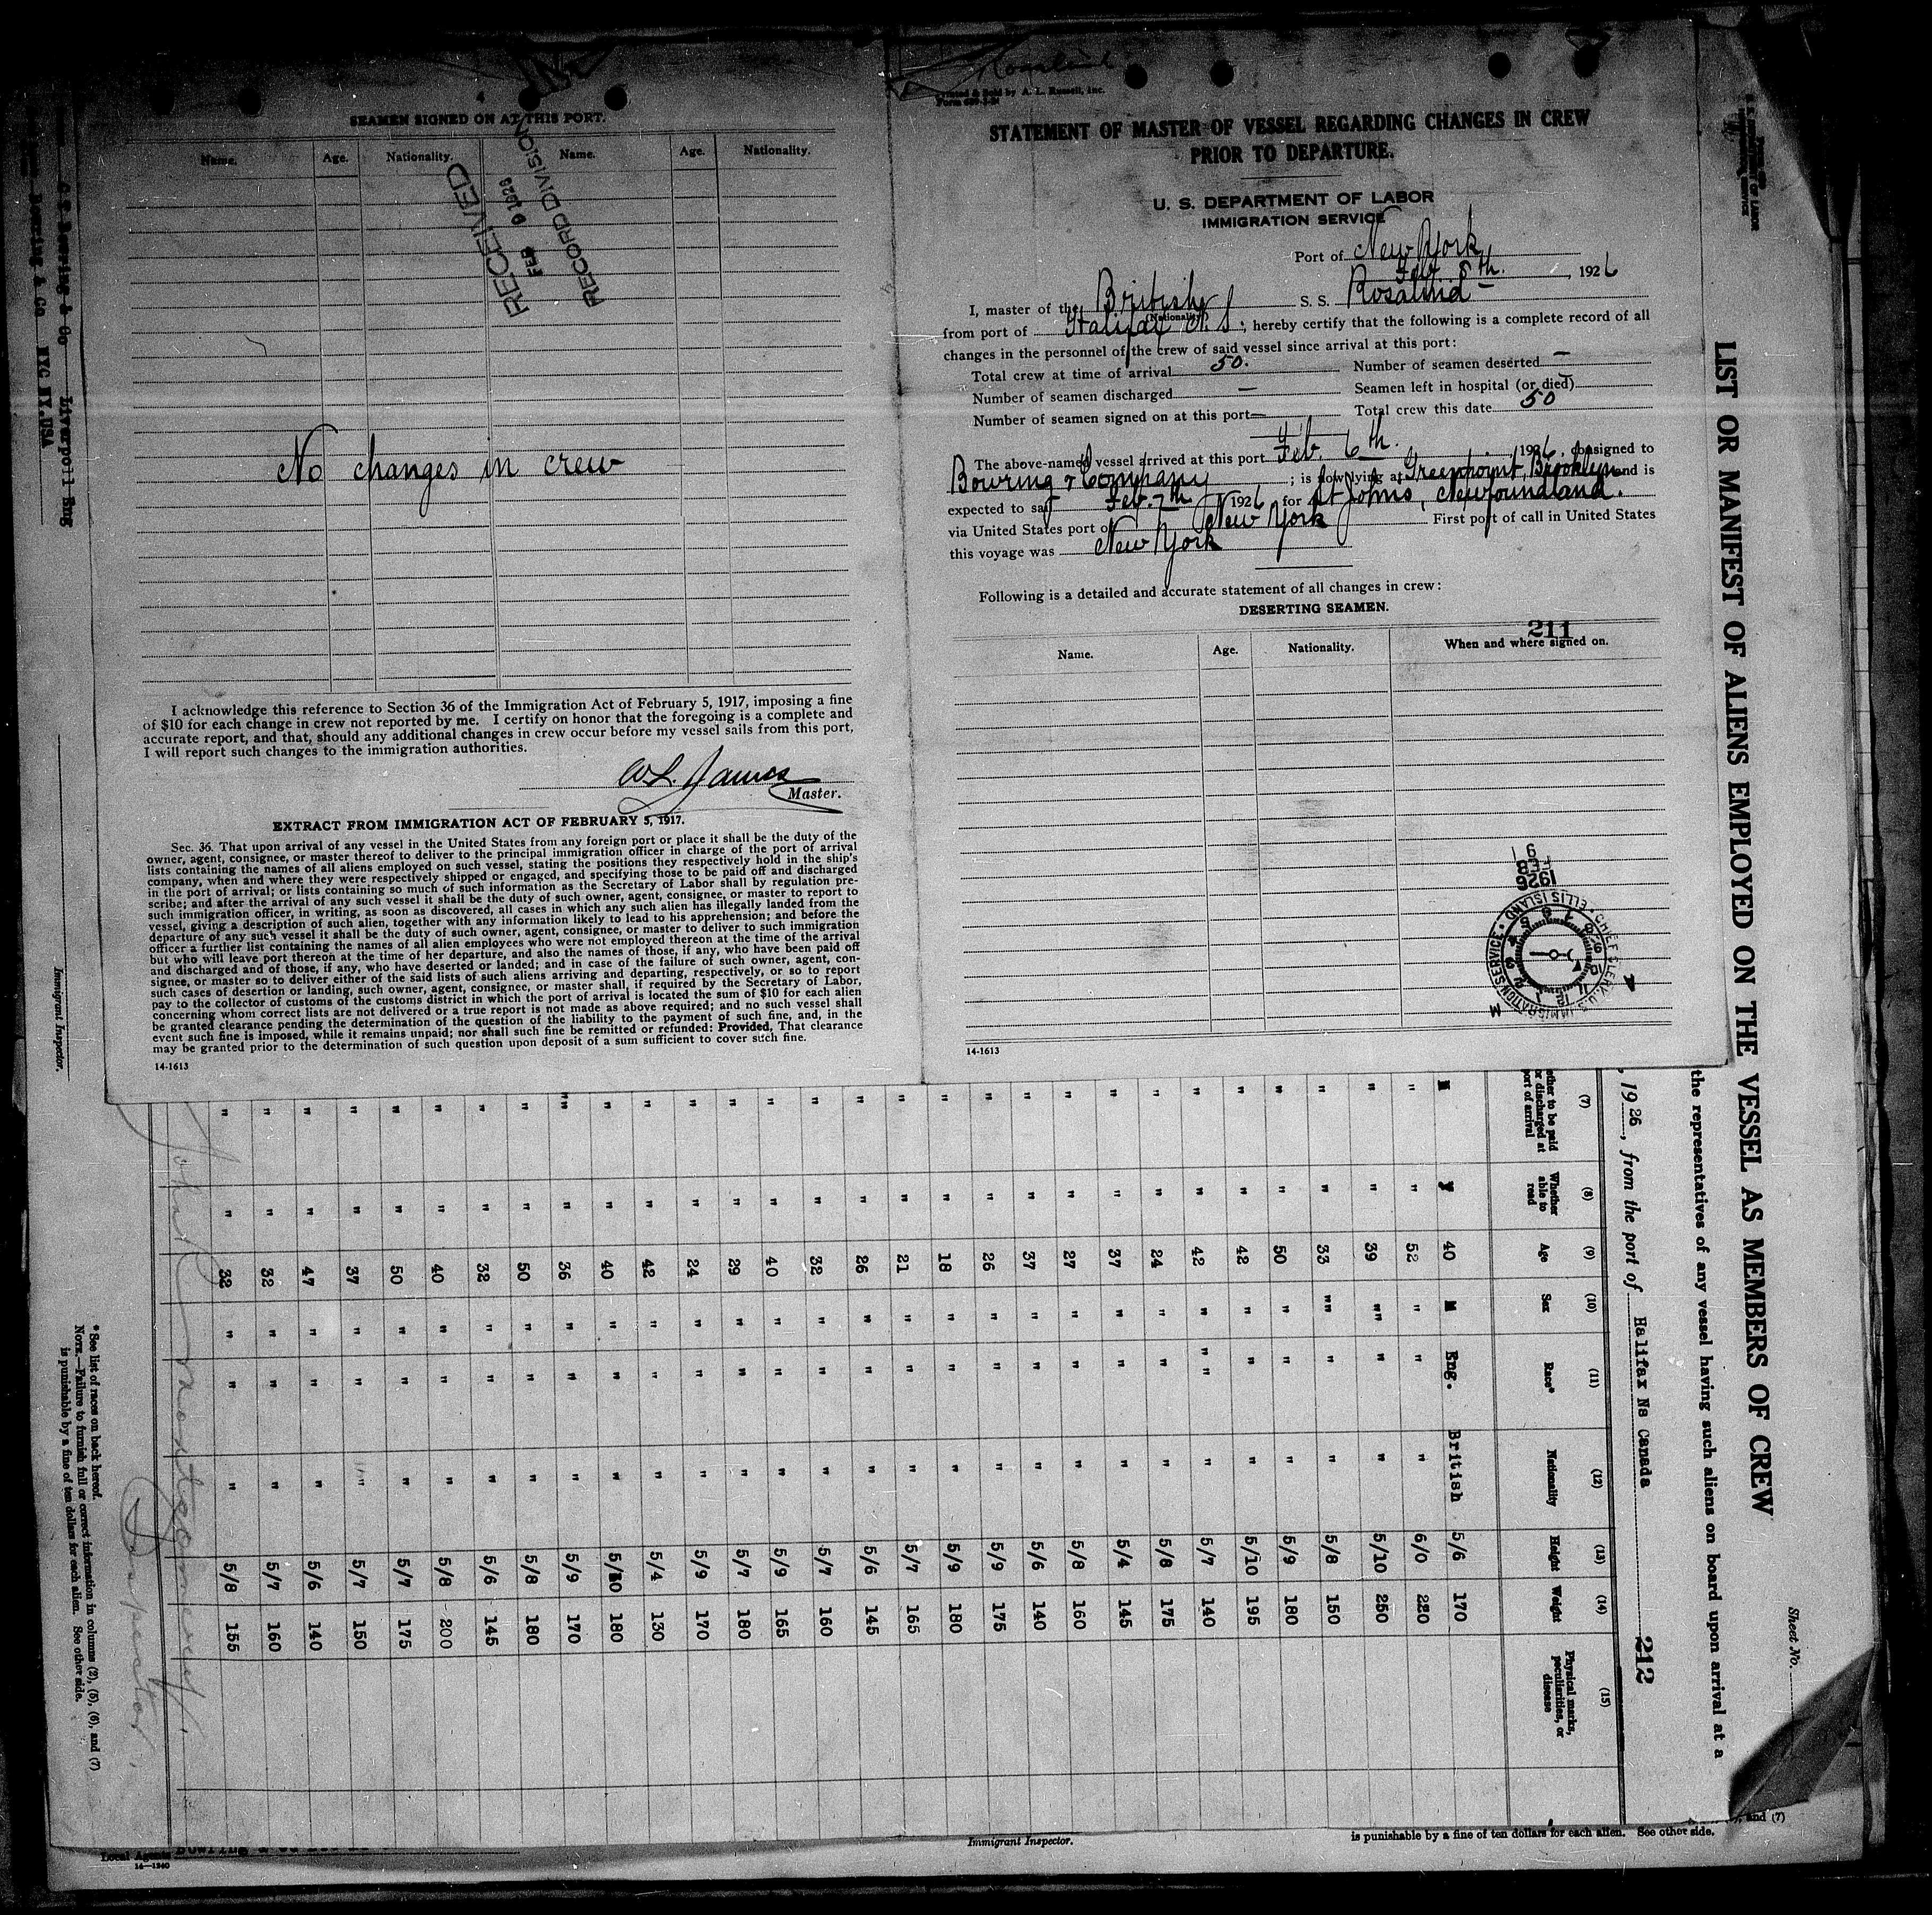 4
SEAMEN SIGNED ON AT THIS PORT.
Name. Age. Nationality. Name. Age. Nationality.
RECEIVED
FEB 9 1926
RECORD DIVISION
No changes in crew
I acknowledge this reference to Section 36 of the Immigration Act of February 5, 1917, imposing a fine
of $10 for each change in crew not reported by me. I certify on honor that the foregoing is a complete and
accurate report, and that, should any additional changes in crew occur before my vessel sails from this port,
I will report such changes to the immigration authorities.
W.L. James
Master.
EXTRACT FROM IMMIGRATION ACT OF FEBRUARY 5, 1917.
Sec. 36. That upon arrival of any vessel in the United States from any foreign port or place it shall be the duty of the
owner, agent, consignee, or master thereof to deliver to the principal immigration officer in charge of the port of arrival
lists containing the names of all aliens employed on such vessel, stating the positions they respectively hold in the ship's
company, when and where they were respectively shipped or engaged, and specifying those to be paid off and discharged
in the port of arrival; or lists containing so much of such information as the Secretary of Labor shall by regulation pre-
scribe; and after the arrival of any such vessel it shall be the duty of such owner, agent, consignee, or master to report to
such immigration officer, in writing, as soon as discovered, all cases in which any such alien has illegally landed from the
vessel, giving a description of such alien, together with any information likely to lead to his apprehension; and before the
departure of any such vessel it shall be the duty of such owner, agent, consignee, or master to deliver to such immigration
officer a further list containing the names of all alien employees who were not employed thereon at the time of the arrival
but who will leave port thereon at the time of her departure, and also the names of those, if any, who have been paid off
and discharged and of those, if any, who have deserted or landed; and in case of the failure of such owner, agent, con-
signee, or master so to deliver either of the said lists of such aliens arriving and departing, respectively, or so to report
such cases of desertion or landing, such owner, agent, consignee, or master shall, if required by the Secretary of Labor,
pay to the collector of customs of the customs district in which the port of arrival is located the sum of $10 for each alien
concerning whom correct lists are not delivered or a true report is not made as above required; and no such vessel shall
be granted clearance pending the determination of the question of the liability to the payment of such fine, and, in the
event such fine is imposed, while it remains unpaid; nor shall such fine be remitted or refunded: Provided, That clearance
may be granted prior to the determination of such question upon deposit of a sum sufficient to cover such fine.
14-1613
Rosalind
Printed & Sold by A. L. Russell, Inc.
STATEMENT OF MASTER OF VESSEL REGARDING CHANGES IN CREW
PRIOR TO DEPARTURE.
U. S. DEPARTMENT OF LABOR
IMMIGRATION SERVICE
Port of New York
Feb 8th. , 1926
I, master of the British S. S. Rosalind
(Nationality)
from port of Halifax N.S., hereby certify that the following is a complete record of all
changes in the personnel of the crew of said vessel since arrival at this port:
Total crew at time of arrival 50. Number of seamen deserted —
Number of seamen discharged — Seamen left in hospital (or died) —
Number of seamen signed on at this port — Total crew this date 50
The above-named vessel arrived at this port Feb. 6th. , 1926, consigned to
Bowring & Company ; is now lying at Greenpoint, Brooklyn and is
expected to sail Feb. 7th , 1926 for St Johns, Newfoundland.
via United States port of New York First port of call in United States
this voyage was New York
Following is a detailed and accurate statement of all changes in crew:
DESERTING SEAMEN.
211
Name. Age. Nationality. When and where signed on.
FEB 9 1926
CHIEF CLERK, U.S. IMMIGRATION SERVICE · ELLIS ISLAND
14-1613
LIST OR MANIFEST OF ALIENS EMPLOYED ON THE VESSEL AS MEMBERS OF CREW
the representatives of any vessel having such aliens on board upon arrival at a
Sheet No.
, 1926, from the port of Halifax Ns Canada
212
(7) (8) (9) (10) (11) (12) (13) (14) (15)
ether to be paid or discharged at port of arrival
Whether able to read
Age
Sex
Race*
Nationality
Height
Weight
Physical marks, peculiarities, or disease
N Y 40 M Eng. British 5/6 170
" " 52 " " " 6/0 220
" " 39 "" " " 5/10 250
" " 33 "" " " 5/8 150
" " 50 " " " 5/9 180
" " 42 " " " 5/10 195
" " 42 " "" " 5/7 140
" " 24 " " " 5/8 175
" " 37 " " " 5/4 145
" " 27 " " " 5/8 160
" " 37 " " " 5/6 140
" " 26 " " " 5/9 175
" " 18 " " " 5/9 180
" " 21 " " " 5/7 165
" " 26 " " " 5/6 145
" " 32 " " " 5/7 160
" " 40 " " " 5/9 165
" " 29 " " " 5/7 180
" " 24 " " " 5/9 170
" " 42 " " " 5/4 130
" " 40 " " " 5/10 180
"" " 36 " " " 5/9 170
" " 50 " " " 5/8 180
" " 32 " " " 5/6 145
" " 40 " " " 5/8 200
" " 50 " " " 5/7 175
" " 37 " " " 5/7 150
" " 47 " " " 5/6 140
" " 32 " " " 5/7 160
" " 32 " " " 5/8 155
* See list of races on back hereof.
NOTE.—Failure to furnish full or correct information in columns (2), (5), (6), and (7)
is punishable by a fine of ten dollars for each alien. See other side.
Immigrant Inspector.
Bowring & Co Liverpoll Eng
Bowring & Co NYC NY.USA
Local Agents
14—1240
Immigrant Inspector.
and (7)
is punishable by a fine of ten dollars for each alien. See other side.